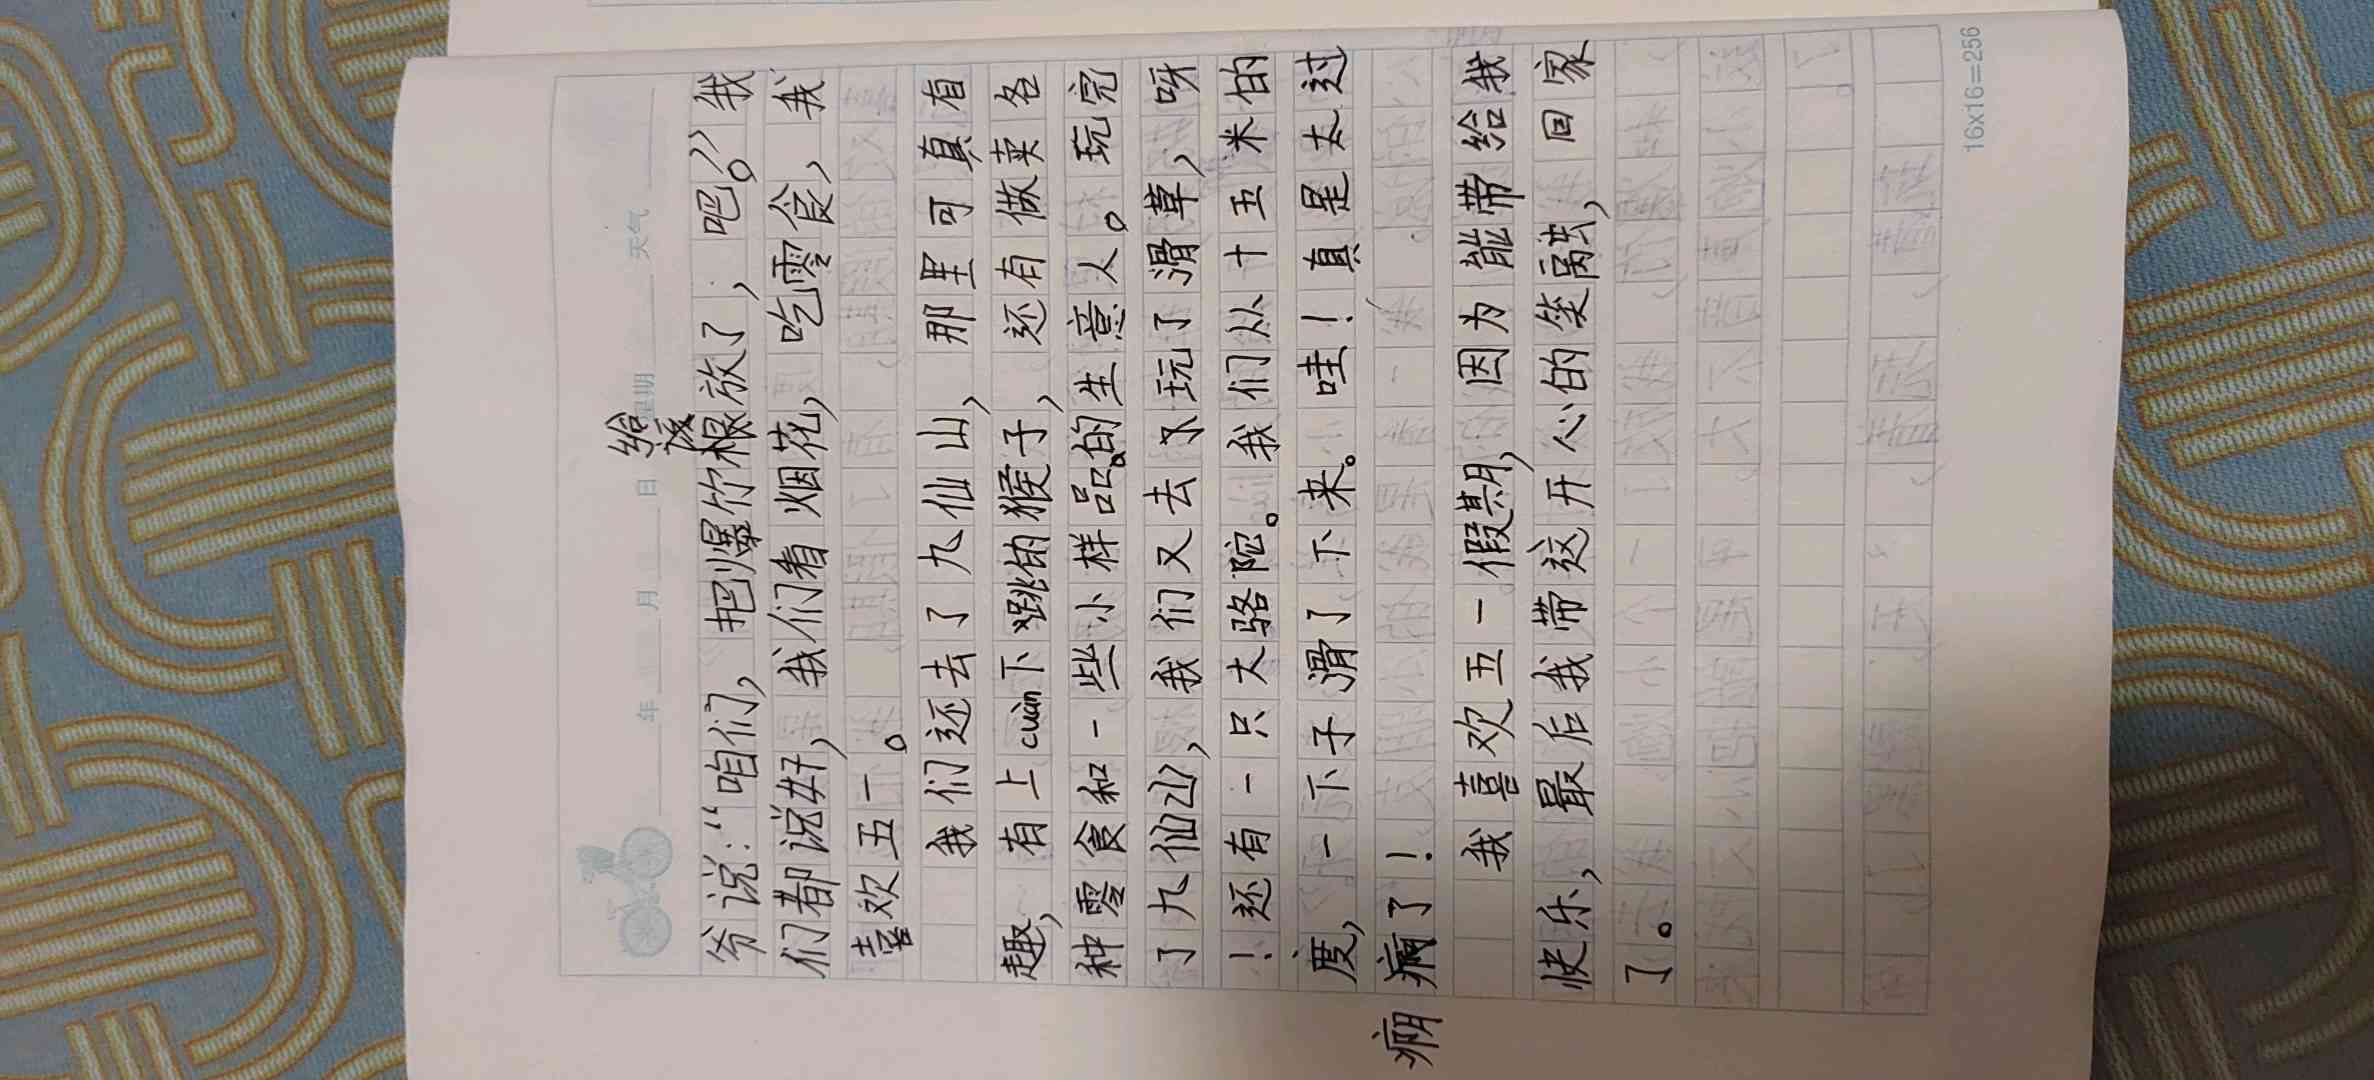 年 月 日 星期 天气
给
爷说：“咱们，把爆竹根放了，吧。”我
们都说好，我们看烟花，吃零食，我
喜欢五一。
我们还去了九仙山，那里可真有
趣，有上cuàn下跳的猴子，还有做卖各
种零食和一些小样品的生意人。玩完
了九仙山，我们又去玩了滑草，呀
！还有一只大骆陀。我们从十五米的
度，一下子滑了下来。哇！真是太过
瘾了！
我喜欢五一假期，因为能带给我
快乐，最后我带这开心的笑离去，回家
了。
16x16=256